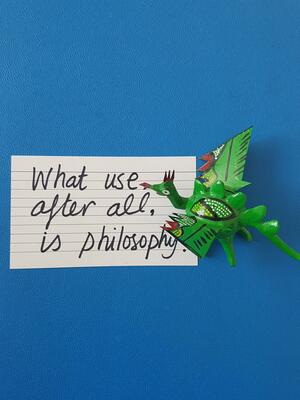 What use,
after all,
is philosophy?